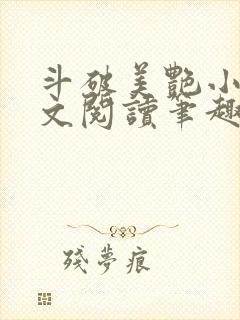 斗破美艷小
文閱讀筆趣
殘夢痕